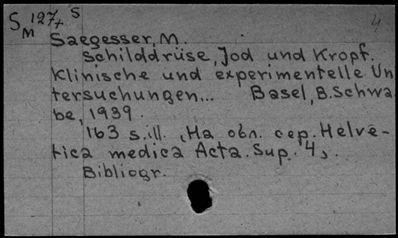 S 127+ S
M
4
Saegesser, M.
Schilddrüse, Jod und Kropf.
Klinische und experimentelle Un
tersuchungen... Basel, B. Schwa-
be, 1939.
163 s. ill. (На обл. сер. Helve-
tica medica Acta. Sup. 4).
Bibliogr.